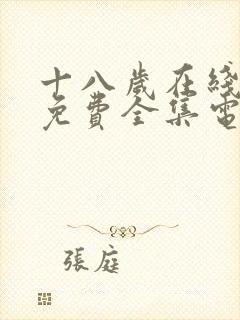 十八歲在綫
免費全集電
張庭